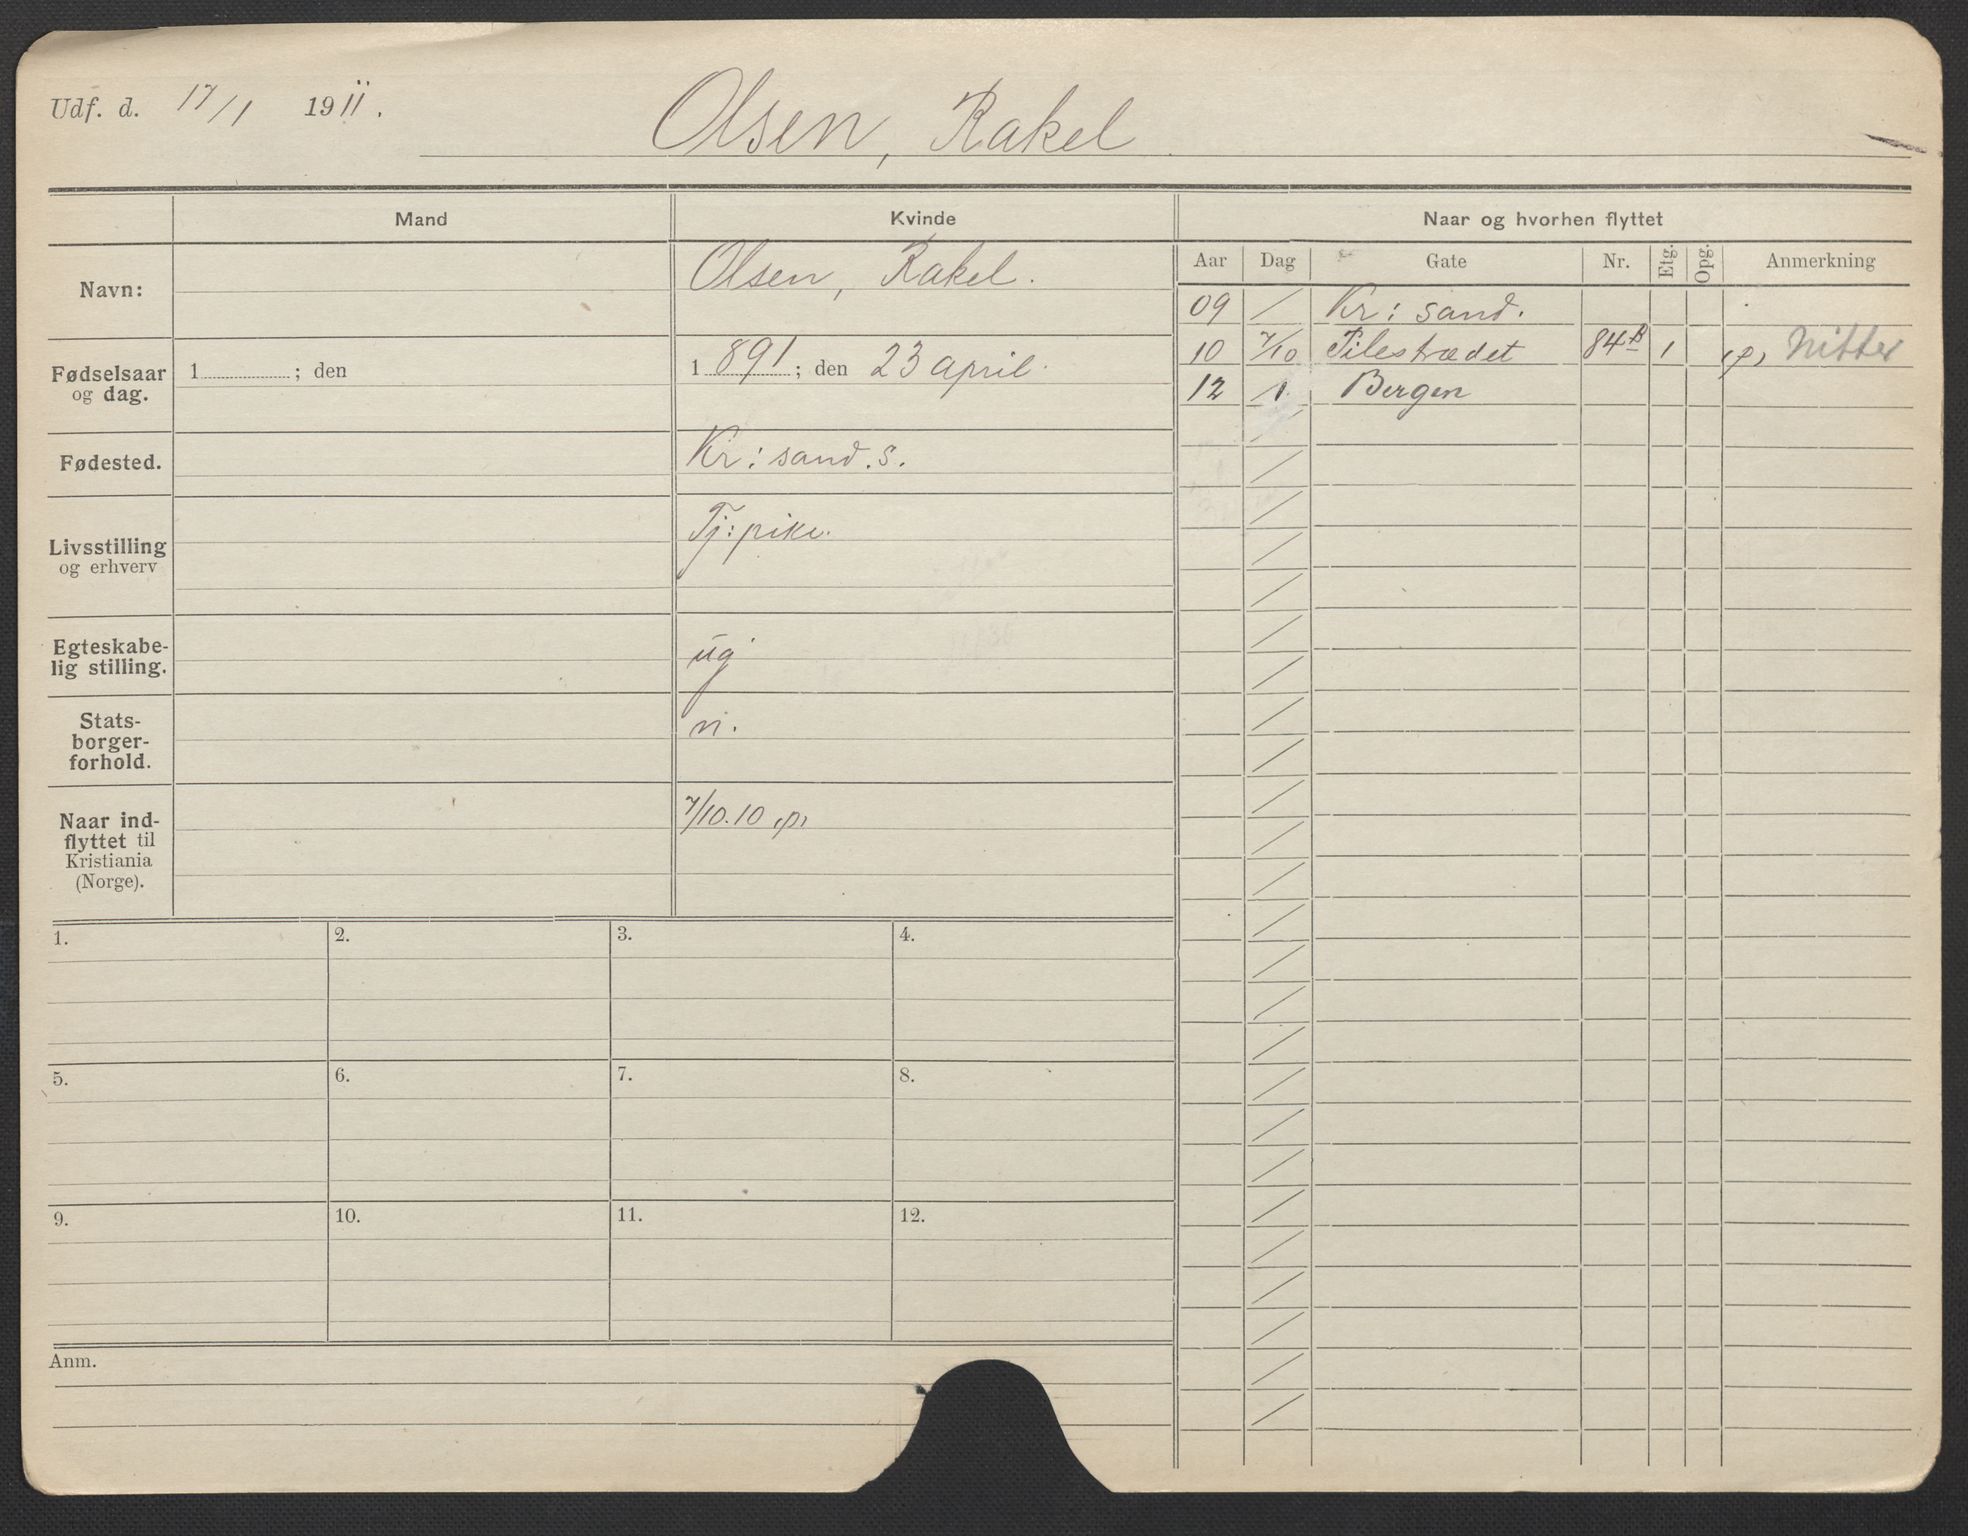 Udf. d. 17/1 1911.
Olsen, Rakel
Mand
Kvinde
Naar og hvorhen flyttet
Navn:
Olsen, Rakel.
Fødselsaar
og dag.
1 ; den
1 891 ; den 23 april.
Fødested.
Kr: sand. s.
Livsstilling
og erhverv
Tj: pike.
Egteskabe-
lig stilling.
ug
Stats-
borger-
forhold.
n.
Naar ind-
flyttet til
Kristiania
(Norge).
7/10.10 ,p,
Aar Dag Gate Nr. Etg. Opg. Anmerkning
09 / Kr: sand.
10 7/10 Pilestrædet 84B 1 ,p, Nitter
12 1/ Bergen
1. 2. 3. 4.
5. 6. 7. 8.
9. 10. 11. 12.
Anm.